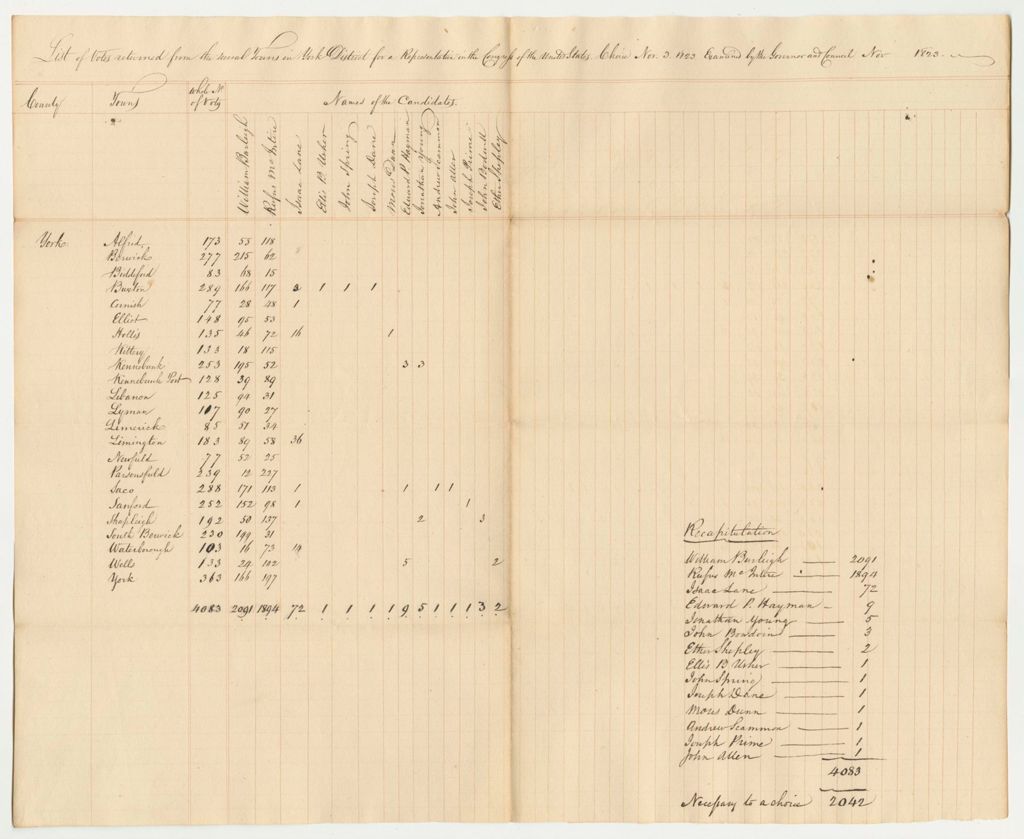 List of Votes returned from the several Towns in York District for a Representative in the Congress of the United States. Choice Nov. 3. 1823 Examined by the Governor and Council Nov 1823.
County Towns Whole No of Votes Names of the Candidates.
William Burleigh Rufus McIntire Isaac Lane Ellis B. Usher John Spring Joseph Dane Moses Dunn Edward P. Hayman Jonathan Young Andrew Scammon John Allen Joseph Prime John Bodwell Ether Shepley
York. Alfred, 173 55 118
Berwick 277 215 62
Biddeford 83 68 15
Buxton 289 166 117 3 1 1 1
Cornish 77 28 48 1
Elliot 148 95 53
Hollis 135 46 72 16 1
Kittery 133 18 115
Kennebunk 253 195 52 3 3
Kennebunk Port 128 39 89
Lebanon 125 94 31
Lyman 117 90 27
Limerick 85 51 34
Limington 183 89 58 36
Newfield 77 52 25
Parsonsfield 239 12 227
Saco 288 171 113 1 1 1 1
Sanford 252 152 98 1 1
Shapleigh 192 50 137 2 3
South Berwick 230 199 31
Waterborough 103 16 73 14
Wells 133 24 102 5 2
York 363 166 197
4083 2091 1894 72 1 1 1 1 9 5 1 1 1 3 2
Recapitulation
William Burleigh 2091
Rufus McIntire 1894
Isaac Lane 72
Edward P. Hayman 9
Jonathan Young 5
John Bowdoin 3
Ether Shepley 2
Ellis B Usher 1
John Spring 1
Joseph Dane 1
Moses Dunn 1
Andrew Scammon 1
Joseph Prime 1
John Allen 1
4083
Necessary to a choice 2042